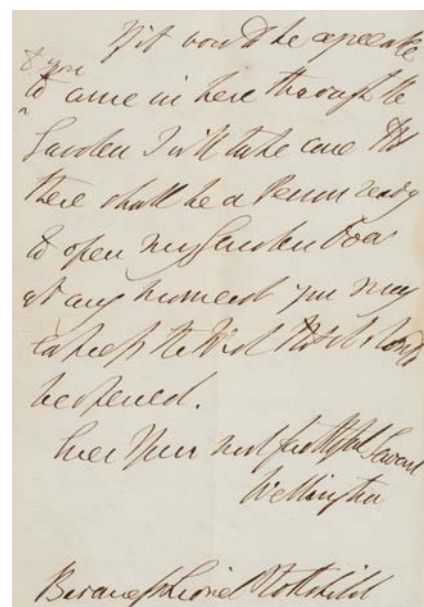 If it would be agreeable
to you
to come in here through the
Garden I will take care that
there shall be a Person ready
to open my Garden Door
at any moment you may
express the Wish that it should
be opened.
Ever Your most faithful Servant
Wellington
Baroness Lionel Rothschild